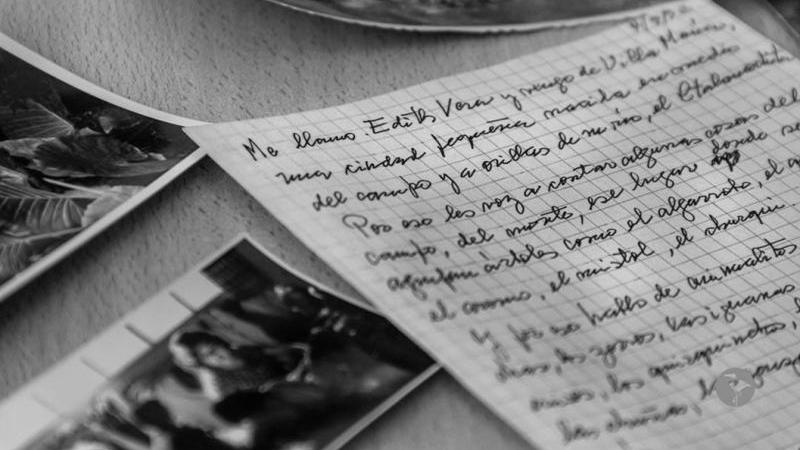 Me llamo Edith Vera y vengo de Villa María,
una ciudad pequeña nacida en medio
del campo y a orillas de un río, el Ctalamochita
Por eso les voy a contar algunas cosas del
campo, del monte, ese lugar donde se
árboles como el algarrobo, el
el coromo, el mistol, el churqui
Y por eso hablo de animalitos
los zorros, las iguanas
los quirquinchos,
las